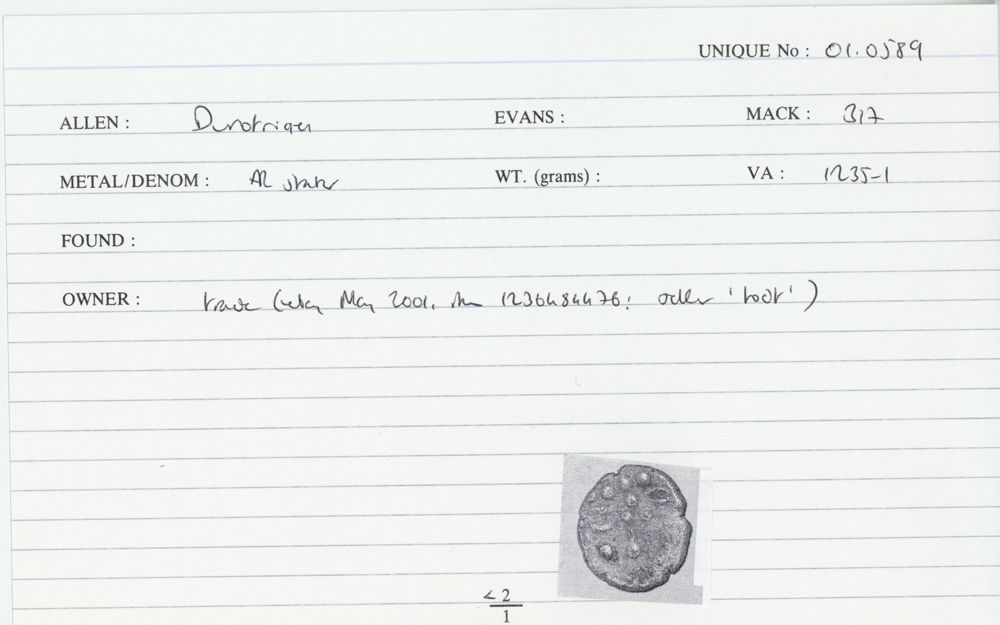 UNIQUE No : 01.0589
ALLEN : Durotriges EVANS : MACK : 317
METAL/DENOM : AR stater WT. (grams) : VA : 1235-1
FOUND :
OWNER : trade (eBay May 2001, item 1236484476: seller 'toot')
< 2
1